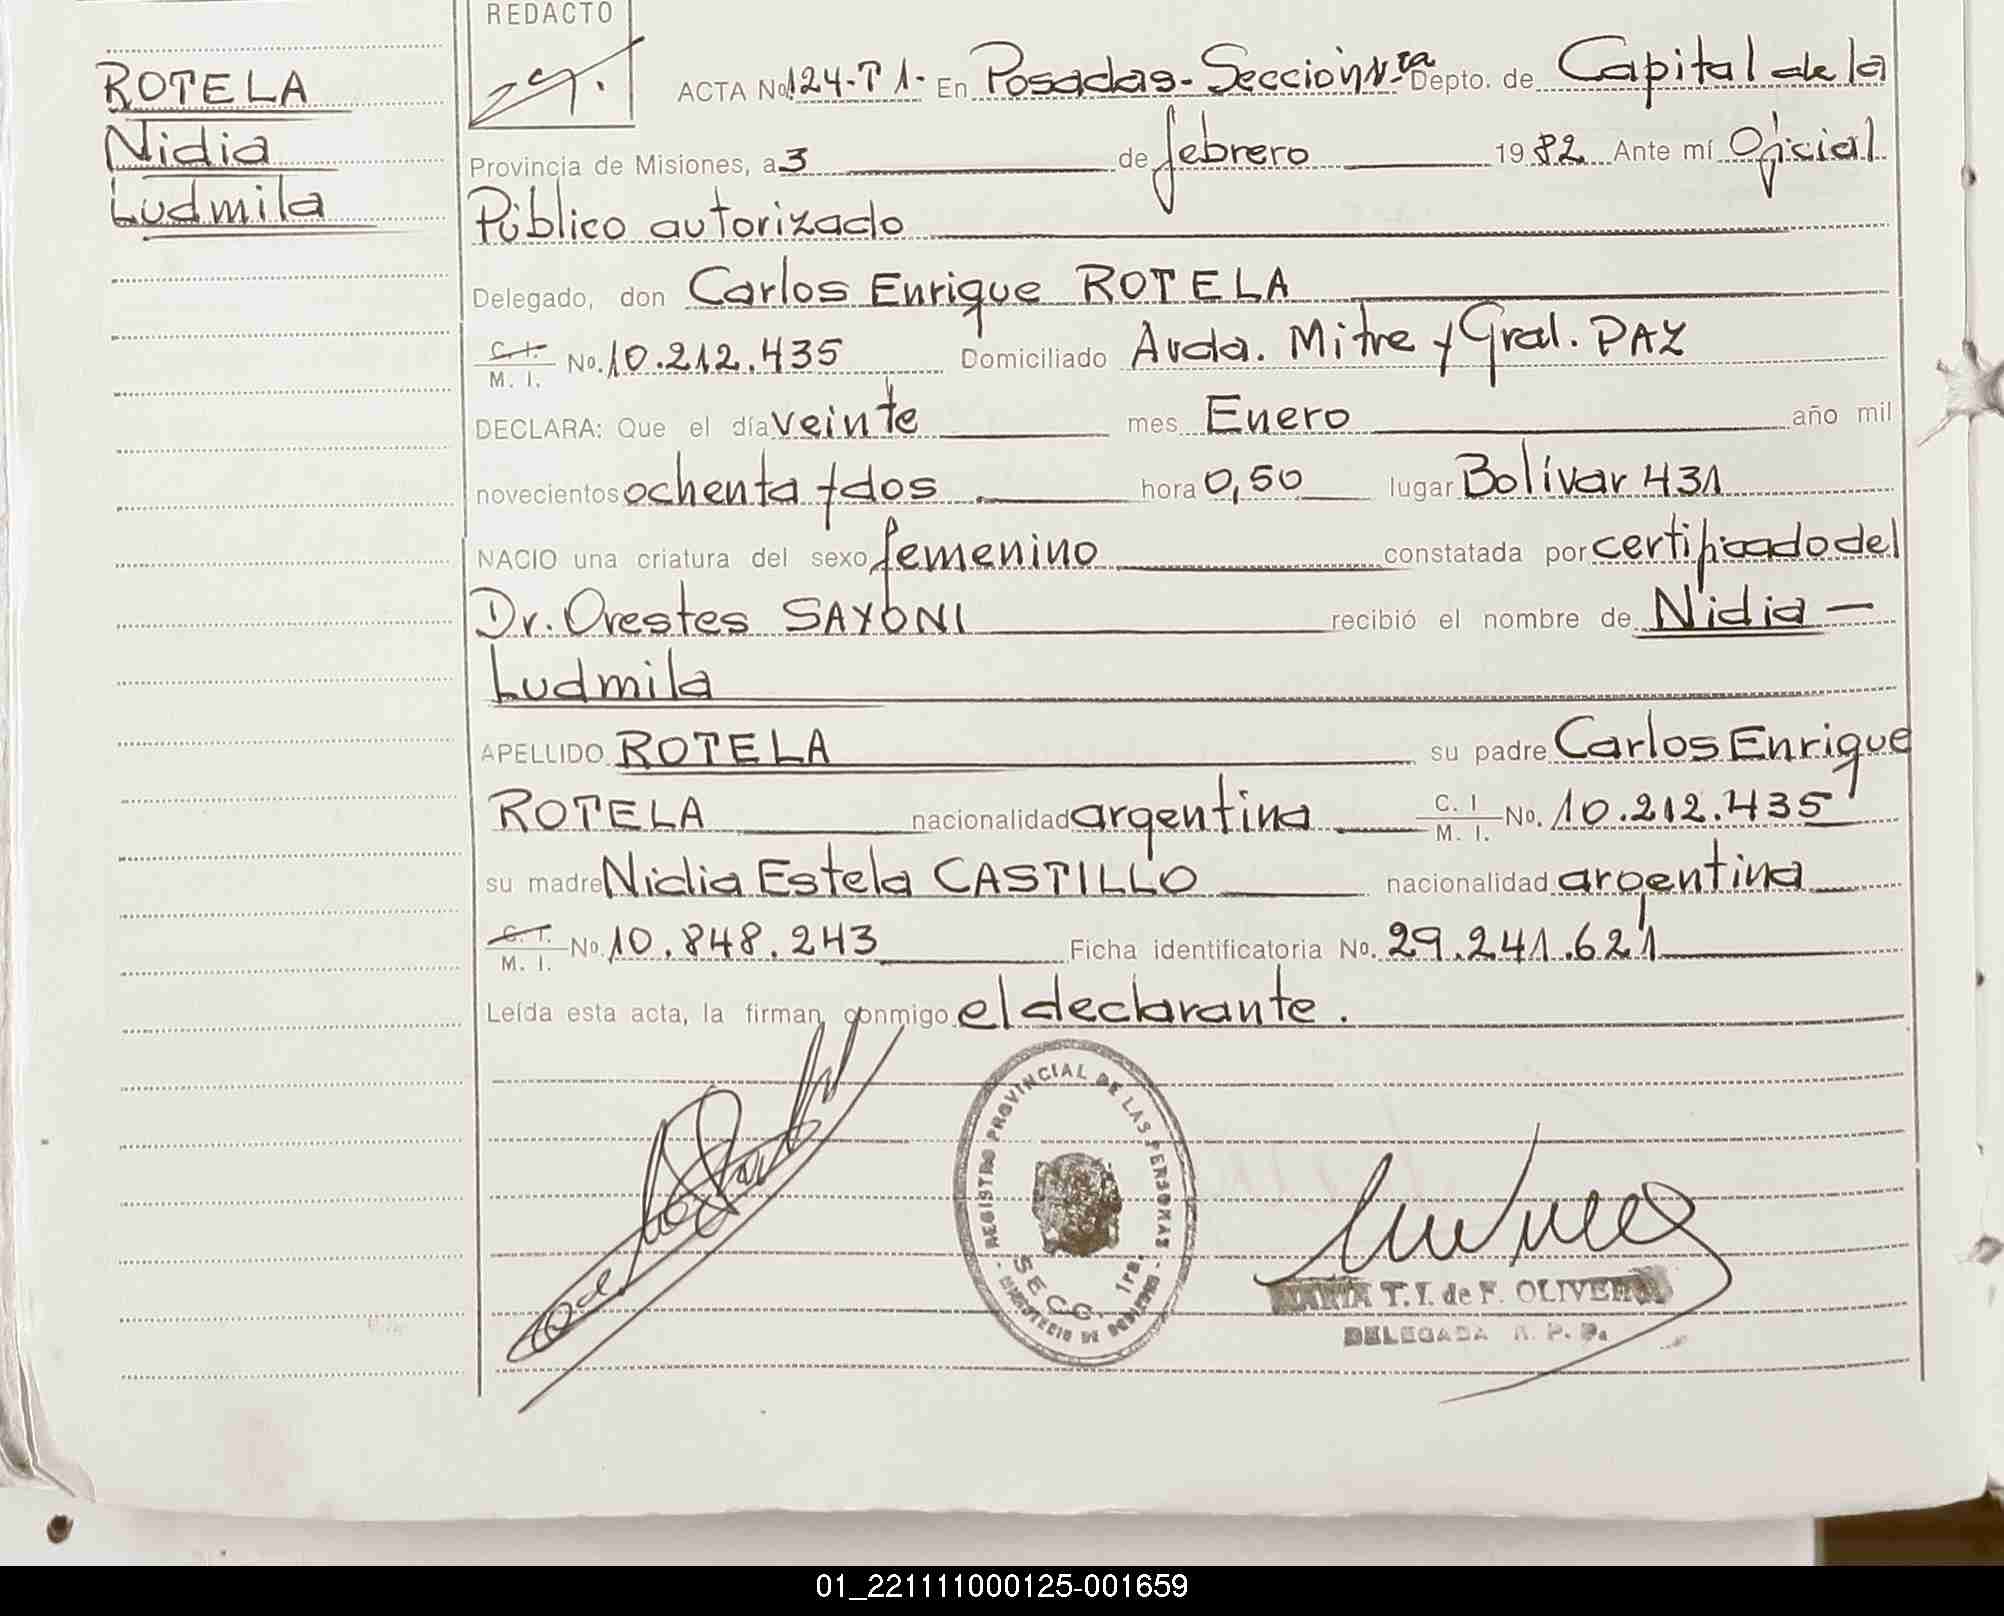 REDACTO
ROTELA
Nidia
Ludmila
ACTA No. 124-T 1.- En Posadas.- Sección 1ra Depto. de Capital de la
Provincia de Misiones, a 3 de febrero 19 82 Ante mí Oficial
Público autorizado
Delegado, don Carlos Enrique ROTELA
C. I. M. I. No. 10.212.435 Domiciliado Avda. Mitre y Gral. PAZ
DECLARA: Que el día veinte mes Enero año mil
novecientos ochenta y dos hora 0,50 lugar Bolívar 431
NACIO una criatura del sexo femenino constatada por certificado del
Dr. Orestes SAYONI recibió el nombre de Nidia
Ludmila
APELLIDO ROTELA su padre Carlos Enrique
ROTELA nacionalidad argentina C. I M. I. No. 10.212.435
su madre Nidia Estela CASTILLO nacionalidad argentina
C. I. M. I. No. 10.848.243 Ficha identificatoria No. 29.241.621
Leída esta acta, la firman conmigo el declarante.
REGISTRO PROVINCIAL DE LAS PERSONAS
SECC. 1ra.
MINISTERIO DE GOBIERNO
MARIA T. I. de F. OLIVEIRA
DELEGADA R. P. P.
01_221111000125-001659